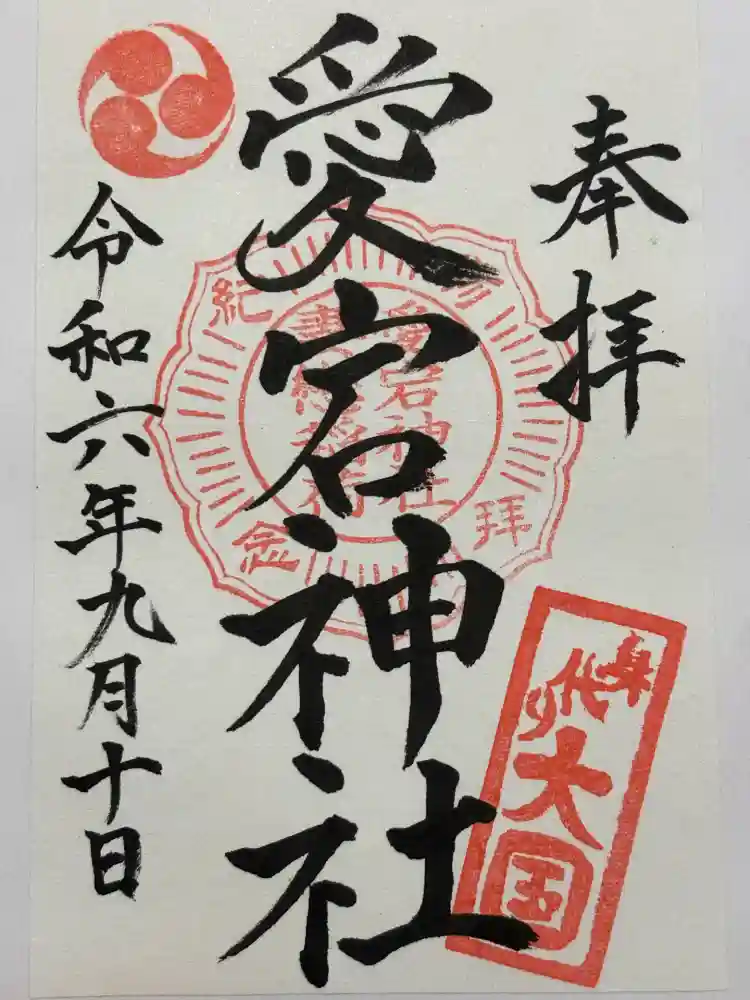 奉拝
愛宕神社
令和六年九月十日
身代り
大国
拝
紀念
愛宕神社
稲荷